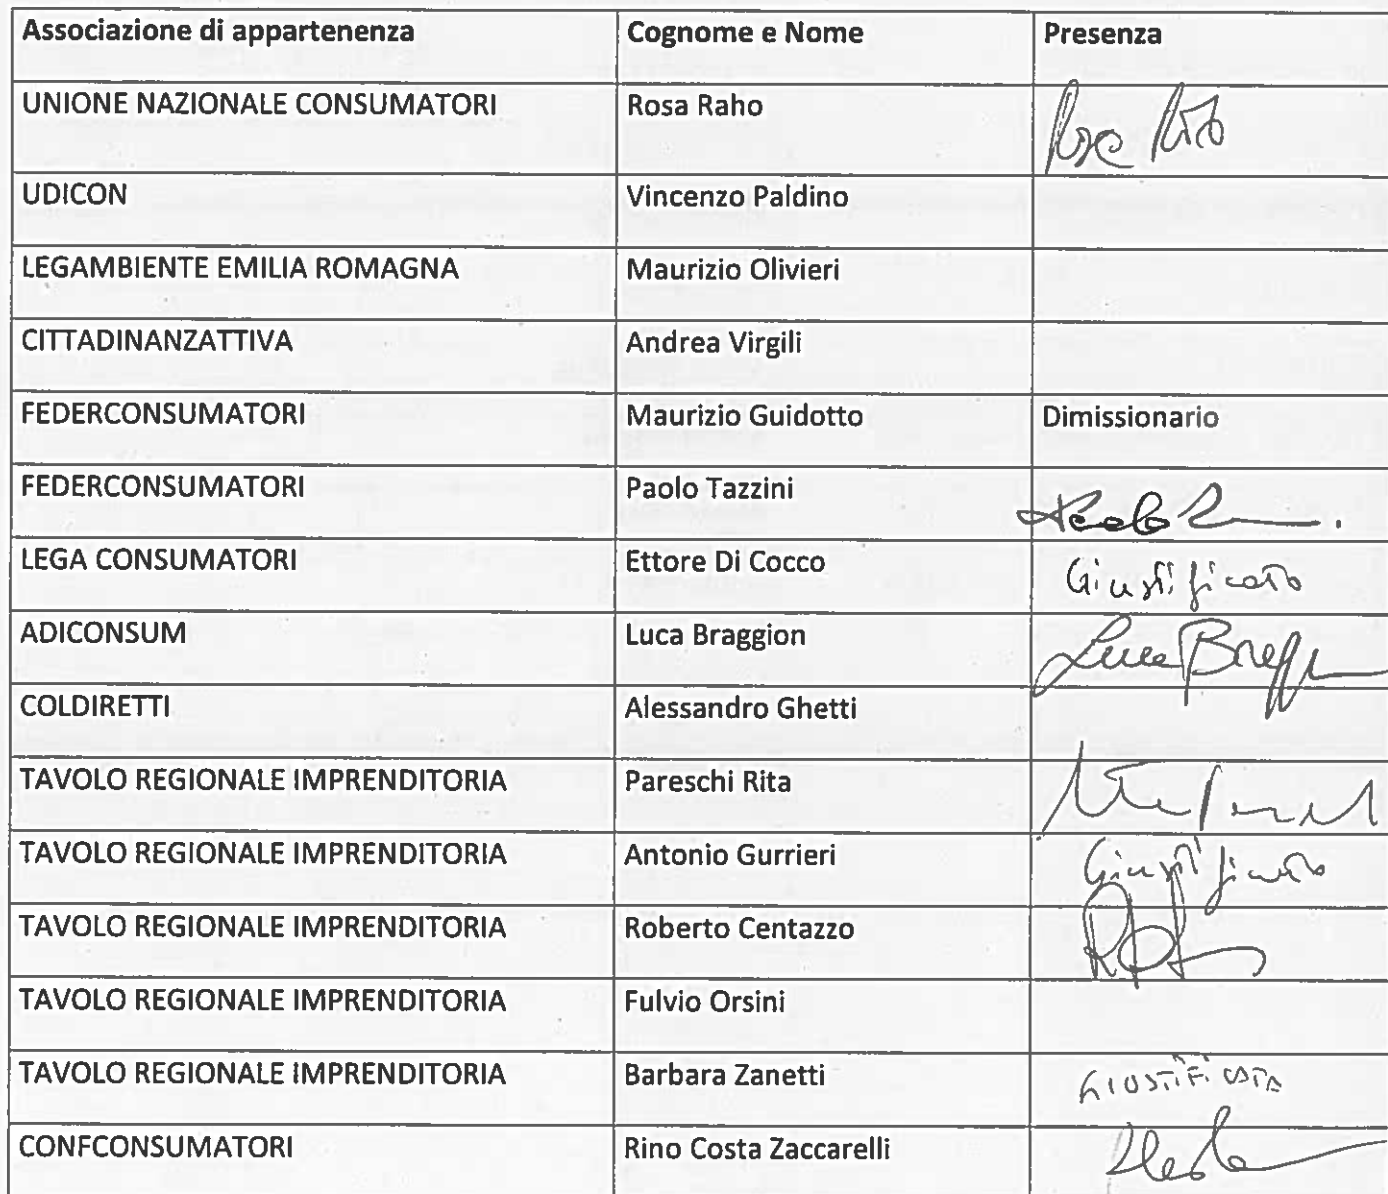 Associazione di appartenenza Cognome e Nome Presenza
UNIONE NAZIONALE CONSUMATORI Rosa Raho
UDICON Vincenzo Paldino
LEGAMBIENTE EMILIA ROMAGNA Maurizio Olivieri
CITTADINANZATTIVA Andrea Virgili
FEDERCONSUMATORI Maurizio Guidotto Dimissionario
FEDERCONSUMATORI Paolo Tazzini
LEGA CONSUMATORI Ettore Di Cocco Giustificato
ADICONSUM Luca Braggion
COLDIRETTI Alessandro Ghetti
TAVOLO REGIONALE IMPRENDITORIA Pareschi Rita
TAVOLO REGIONALE IMPRENDITORIA Antonio Gurrieri Giustificato
TAVOLO REGIONALE IMPRENDITORIA Roberto Centazzo
TAVOLO REGIONALE IMPRENDITORIA Fulvio Orsini
TAVOLO REGIONALE IMPRENDITORIA Barbara Zanetti GIUSTIFICATA
CONFCONSUMATORI Rino Costa Zaccarelli